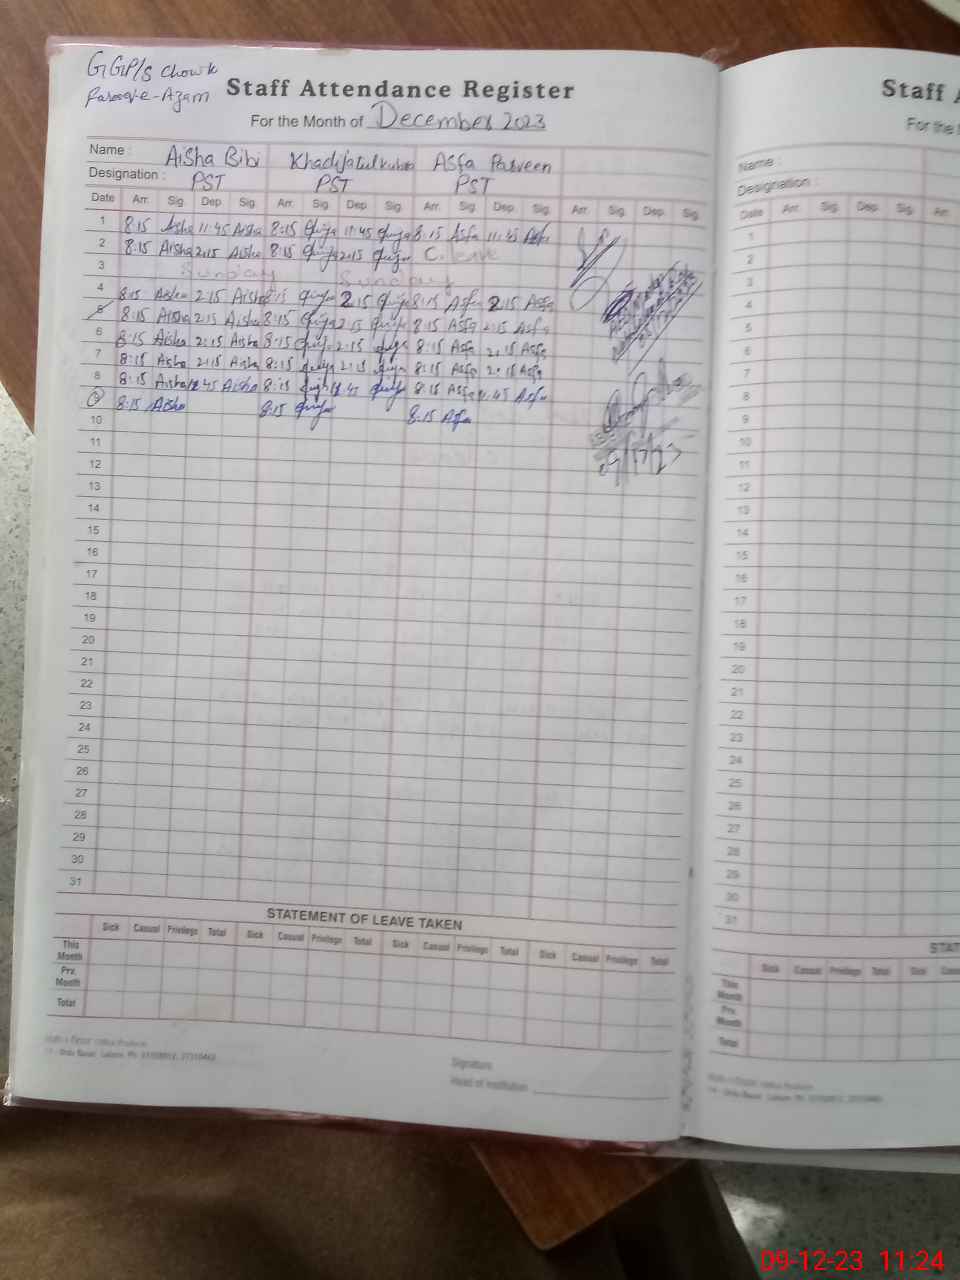 GGP/S Chowk
Farooq-e-Azam
Staff Attendance Register
For the Month of December 2023
Name : Aisha Bibi Khadijatulkubra Asfa Parveen
Designation : PST PST PST
Date Arr. Sig. Dep. Sig. Arr. Sig. Dep. Sig. Arr. Sig. Dep. Sig. Arr. Sig. Dep. Sig.
1 8:15 Aisha 11:45 Aisha 8:15 11:45 8:15 Asfa 11:45 Asfa
2 8:15 Aisha 2:15 Aisha 8:15 2:15 C. leave
3 Sunday Sunday
4 8:15 Aisha 2:15 Aisha 8:15 2:15 8:15 Asfa 2:15 Asfa
5 8:15 Aisha 2:15 Aisha 8:15 2:15 8:15 Asfa 2:15 Asfa
6 8:15 Aisha 2:15 Aisha 8:15 2:15 8:15 Asfa 2:15 Asfa
7 8:15 Aisha 2:15 Aisha 8:15 2:15 8:15 Asfa 2:15 Asfa
8 8:15 Aisha Aisha 8:15 8:15 Asfa 11:45 Asfa
9 8:15 Aisha 8:15 8:15 Asfa
10
11
12
13
14
15
16
17
18
19
20
21
22
23
24
25
26
27
28
29
30
31
STATEMENT OF LEAVE TAKEN
Sick Casual Privilege Total Sick Casual Privilege Total Sick Casual Privilege Total Sick Casual Privilege Total
This Month
Prv. Month
Total
Signature
Head of Institution
Staff A
For the
Name :
Designation :
Date Arr. Sig. Dep. Sig. Arr.
1
2
3
4
5
6
7
8
9
10
11
12
13
14
15
16
17
18
19
20
21
22
23
24
25
26
27
28
29
30
31
STAT
Sick Casual Privilege Total Sick
This Month
Prv. Month
Total
09-12-23 11:24